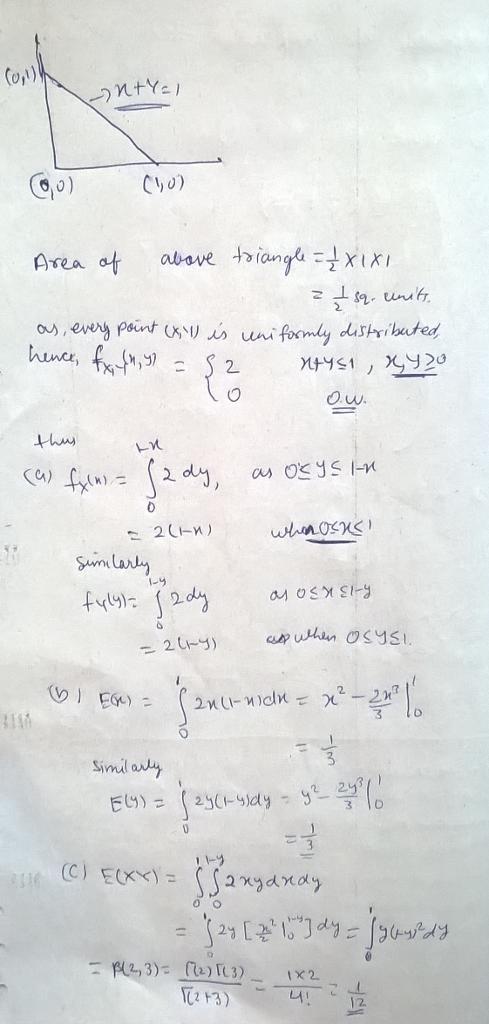 (0,1)
→ x+y=1
(0,0) (1,0)
Area of above triangle = 1/2 × 1 × 1
= 1/2 sq. units.
as, every point (x,y) is uniformly distributed,
hence, f_{X,Y}(x,y) = { 2 x+y≤1, x,y≥0
0 o.w.
thus
(a) f_X(x) = ∫_0^{1-x} 2 dy, as 0≤y≤1-x
= 2(1-x) when 0≤x≤1
Similarly
f_Y(y) = ∫_0^{1-y} 2 dy as 0≤x≤1-y
= 2(1-y) when 0≤y≤1.
(b) E(x) = ∫_0^1 2x(1-x)dx = x² - 2x³/3 |_0^1
= 1/3
Similarly
E(y) = ∫_0^1 2y(1-y)dy = y² - 2y³/3 |_0^1
= 1/3
(c) E(XY) = ∫_0^1 ∫_0^{1-y} 2xy dx dy
= ∫_0^1 2y [x²/2 |_0^{1-y}] dy = ∫_0^1 y(1-y)² dy
= β(2,3) = Γ(2)Γ(3)/Γ(2+3) = 1×2/4! = 1/12